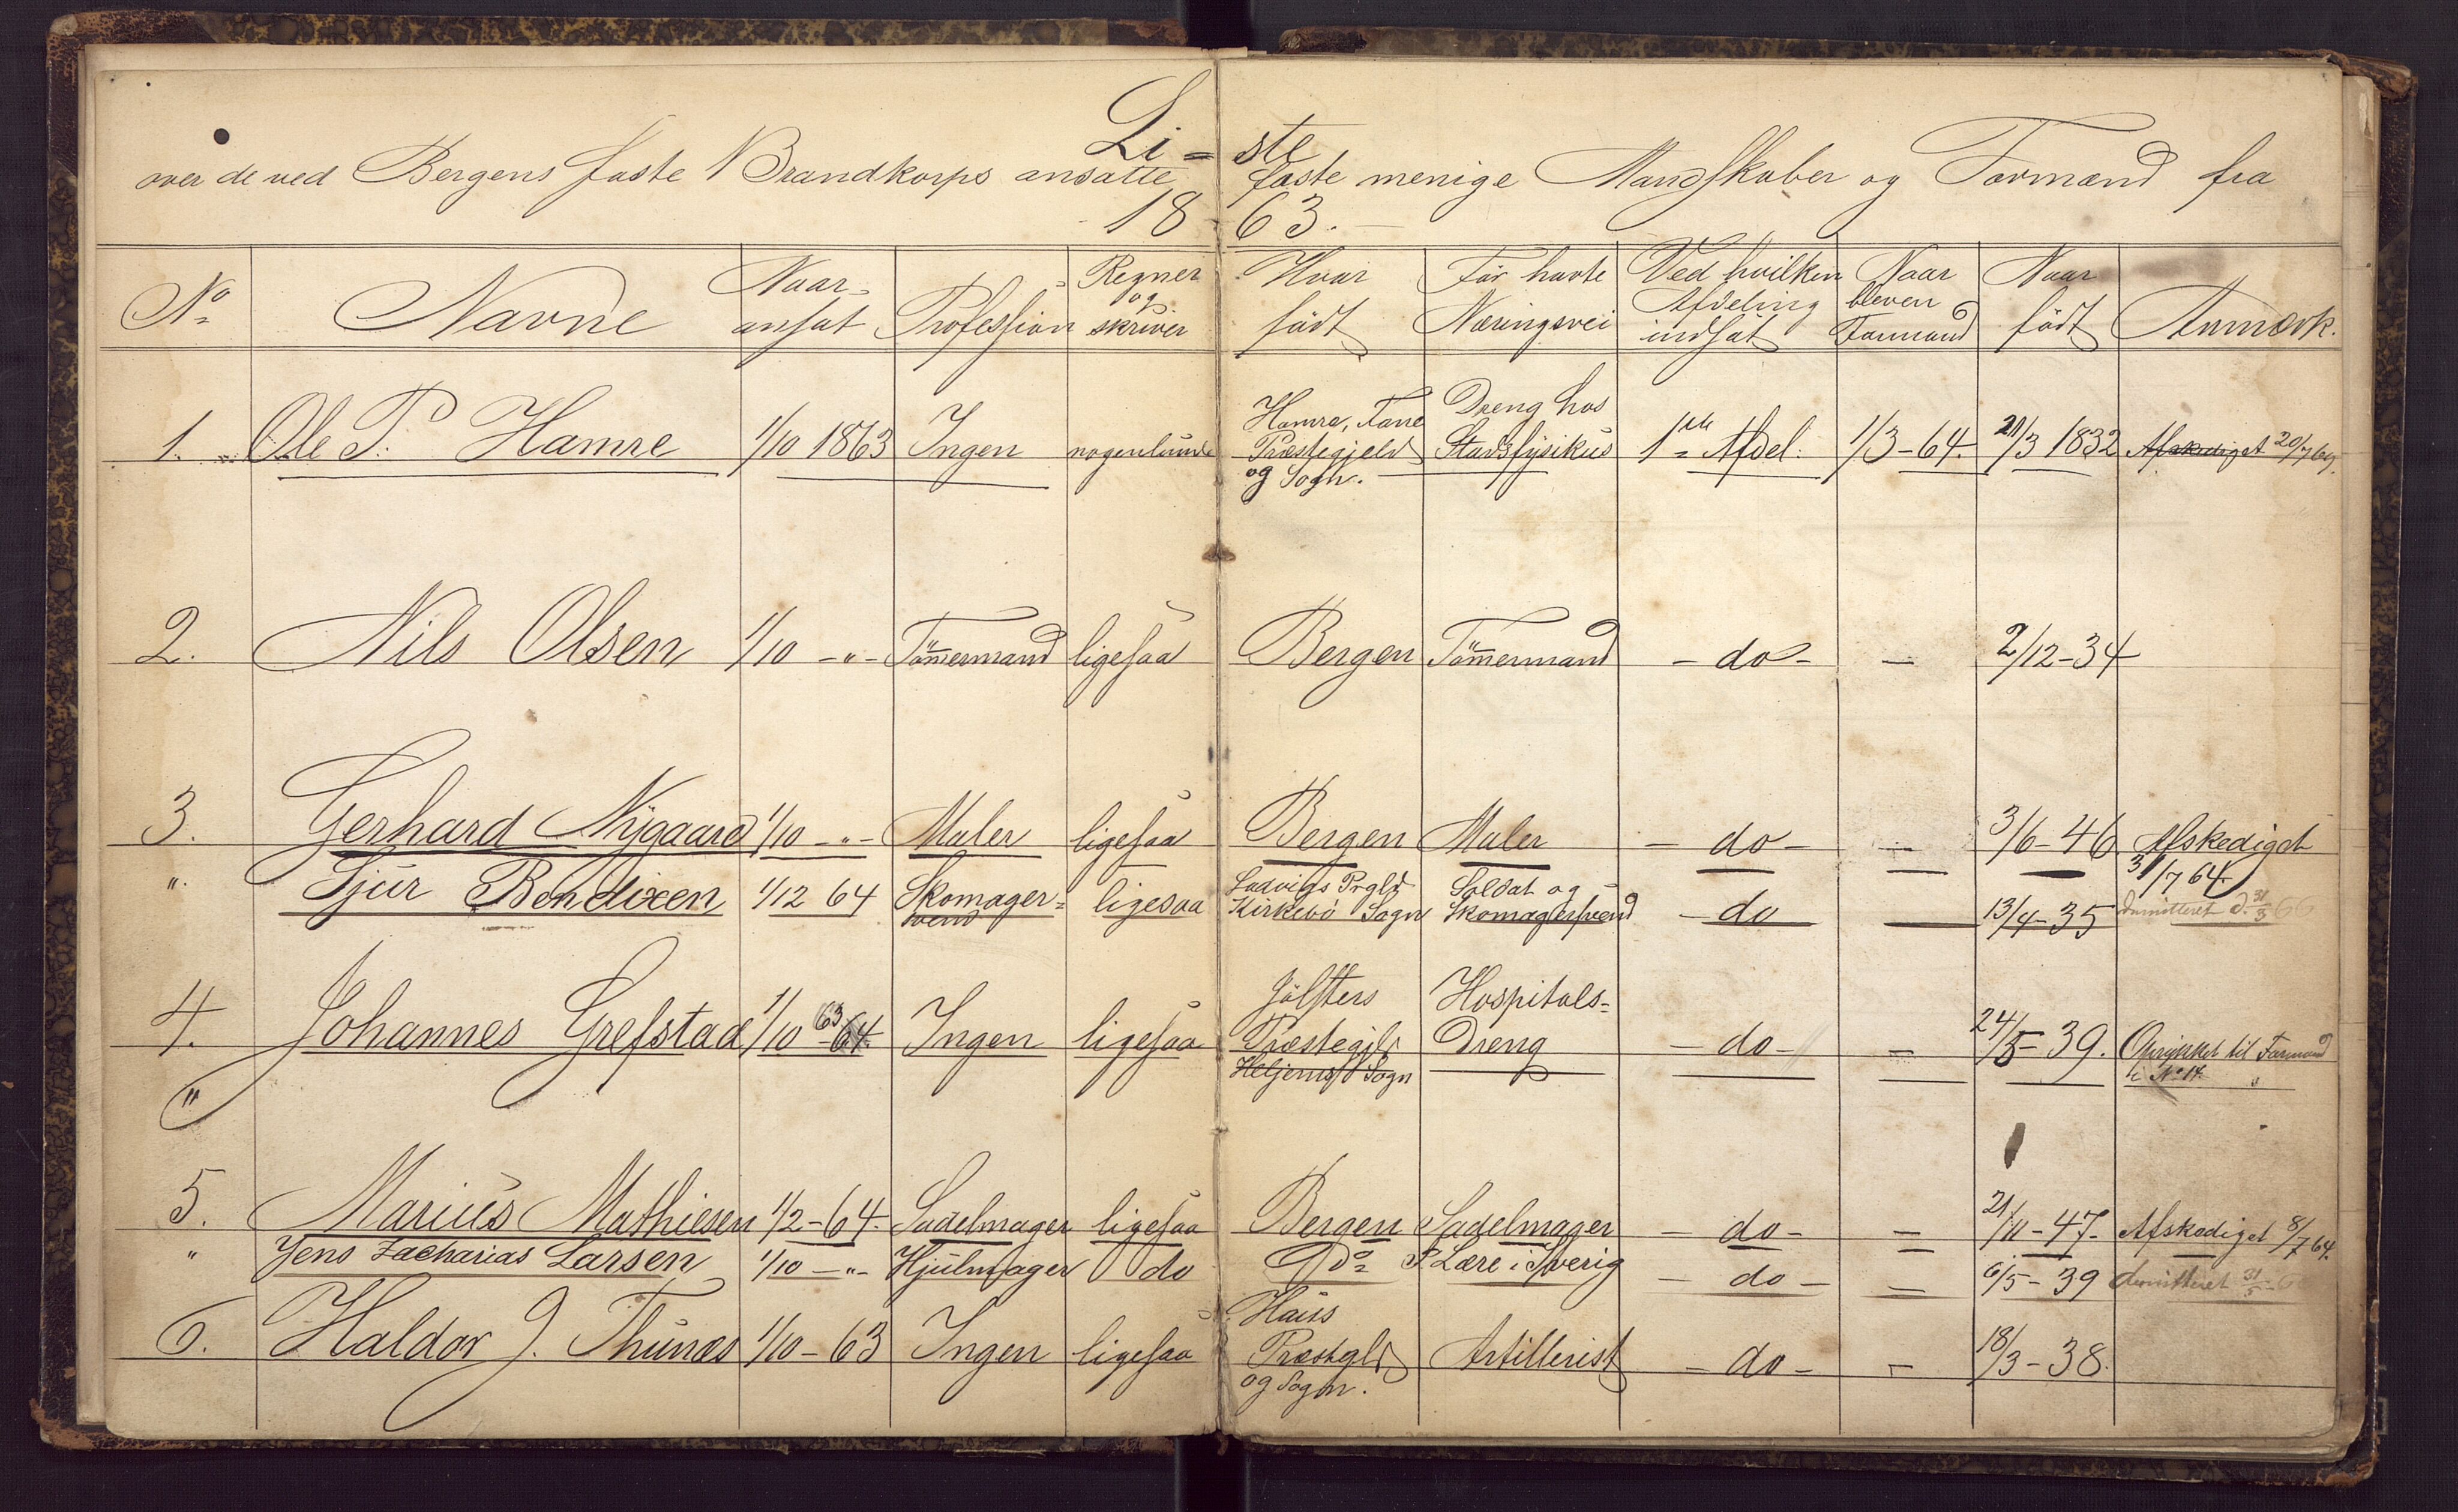 Li = ste
over de ved Bergens faste Brandkorps ansatte faste menige Mandskaber og Formænd fra
1863.
No Navne Naar ansat Profession Regner og skriver Hvor født Før havte Næringsvei Ved hvilken Afdeling indsat Naar bleven Formand Naar født Anmærk.
Hamre, Fane Dreng hos
1. Ole P. Hamre 1/10 1863 Ingen nogenlunde Præstegjeld Stadsfysikus 1ste Afdel. 1/3-64. 21/3 1832 Afskediget 20/7 69.
og Sogn.
2. Nils Olsen 1/10 -"- Tömmermand ligesaa Bergen Tömmermand - do - - 2/12-34
3. Gerhard Nygaard 1/10 -"- Maler ligesaa Bergen Maler - do - - 3/6-46 Afskediget
31/7 64.
". Sjur Bendixen 1/12 64 Skomager= ligesaa Ladvigs Prgld. Soldat og - do - 13/4-35 dimitteret d. 31/3 66
svend Kirkebö Sogn Skomagersvend
Jölsters Hospitals-
4. Johannes Grefstad 1/10 63 64. Ingen ligesaa Præstegjld Dreng - do - - 24/5-39. Oprykket til Formand
" Sogn i No 14.
5. Marius Mathiesen 1/2-64. Sadelmager ligesaa Bergen Sadelmager - do - - 21/11-47- Afskediget 8/7 64.
" Jens Zacharias Larsen 1/10 -"- Hjulmager do Do Lære i Sverig - do - - 6/5-39 dimitteret 31/5
Haus
6. Haldor J. Thunæs 1/10-63 Ingen ligesaa Præstgld Artillerist - do - - 18/3-38.
og Sogn.